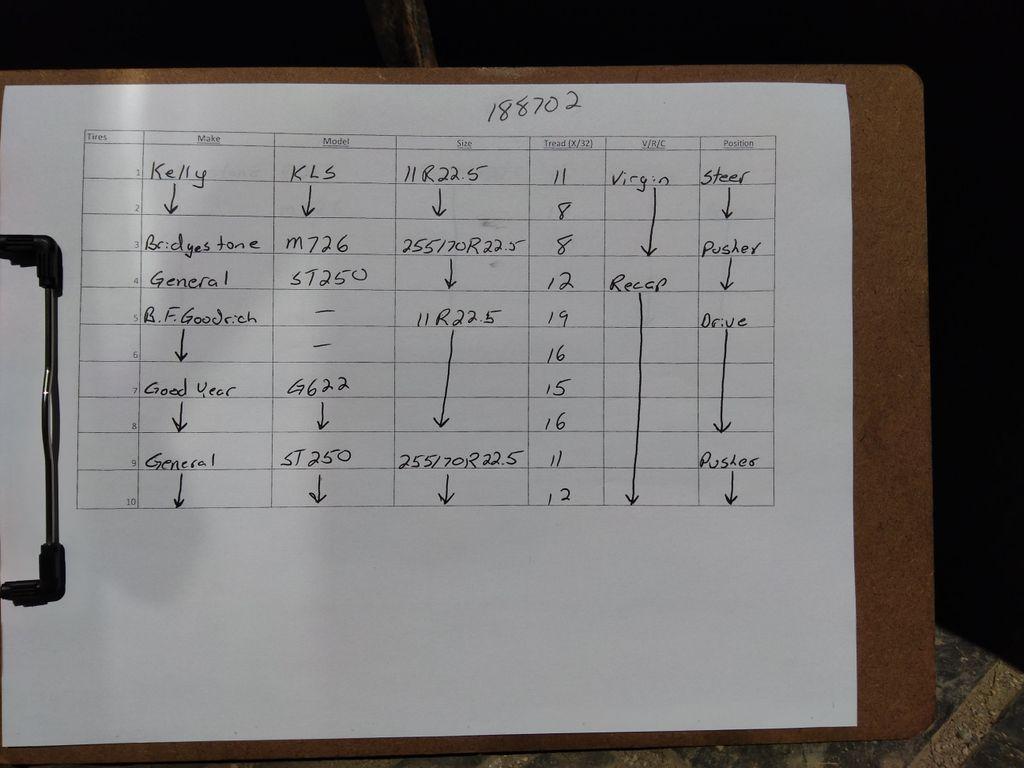 188702
Tires Make Model Size Tread (X/32) V/R/C Position
1 Kelly KLS 11R22.5 11 Virgin Steer
2 ↓ ↓ ↓ 8 ↓
3 Bridgestone m726 255/70R22.5 8 Pusher
4 General ST250 ↓ 12 Recap ↓
5 B.F.Goodrich — 11R22.5 19 Drive
6 ↓ — 16
7 Good Year G622 15
8 ↓ ↓ ↓ 16 ↓
9 General ST250 255/70R22.5 11 Pusher
10 ↓ ↓ ↓ 12 ↓ ↓